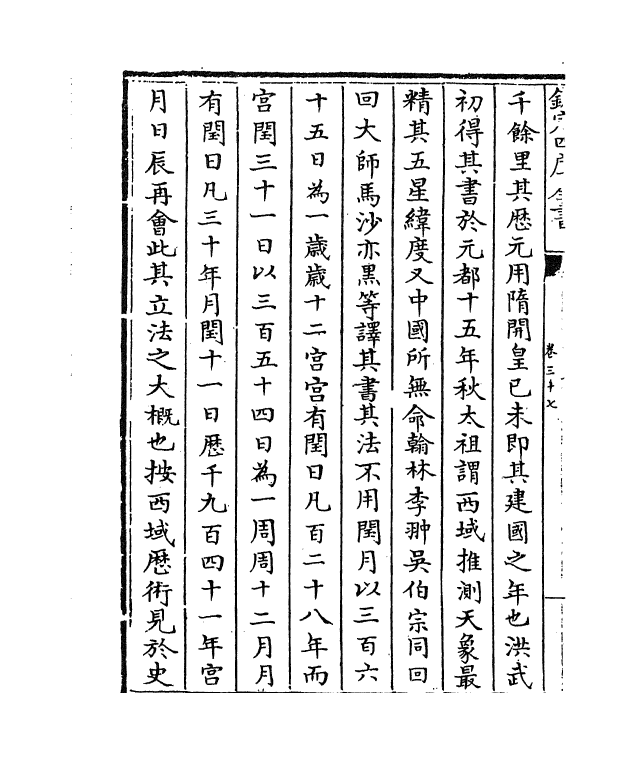 欽定四庫全書
卷三十七
千餘里其歴元用隋開皇已未即其建國之年也洪武
初得其書於元都十五年秋太祖謂西域推測天象最
精其五星緯度又中國所無命翰林李翀吳伯宗同回
回大師馬沙亦黑等譯其書其法不用閏月以三百六
十五日為一歳歳十二宫宫有閏日凡百二十八年而
宫閏三十一日以三百五十四日為一周周十二月月
有閏日凡三十年月閏十一日歴千九百四十一年宫
月日辰再會此其立法之大概也按西域歴術見於史